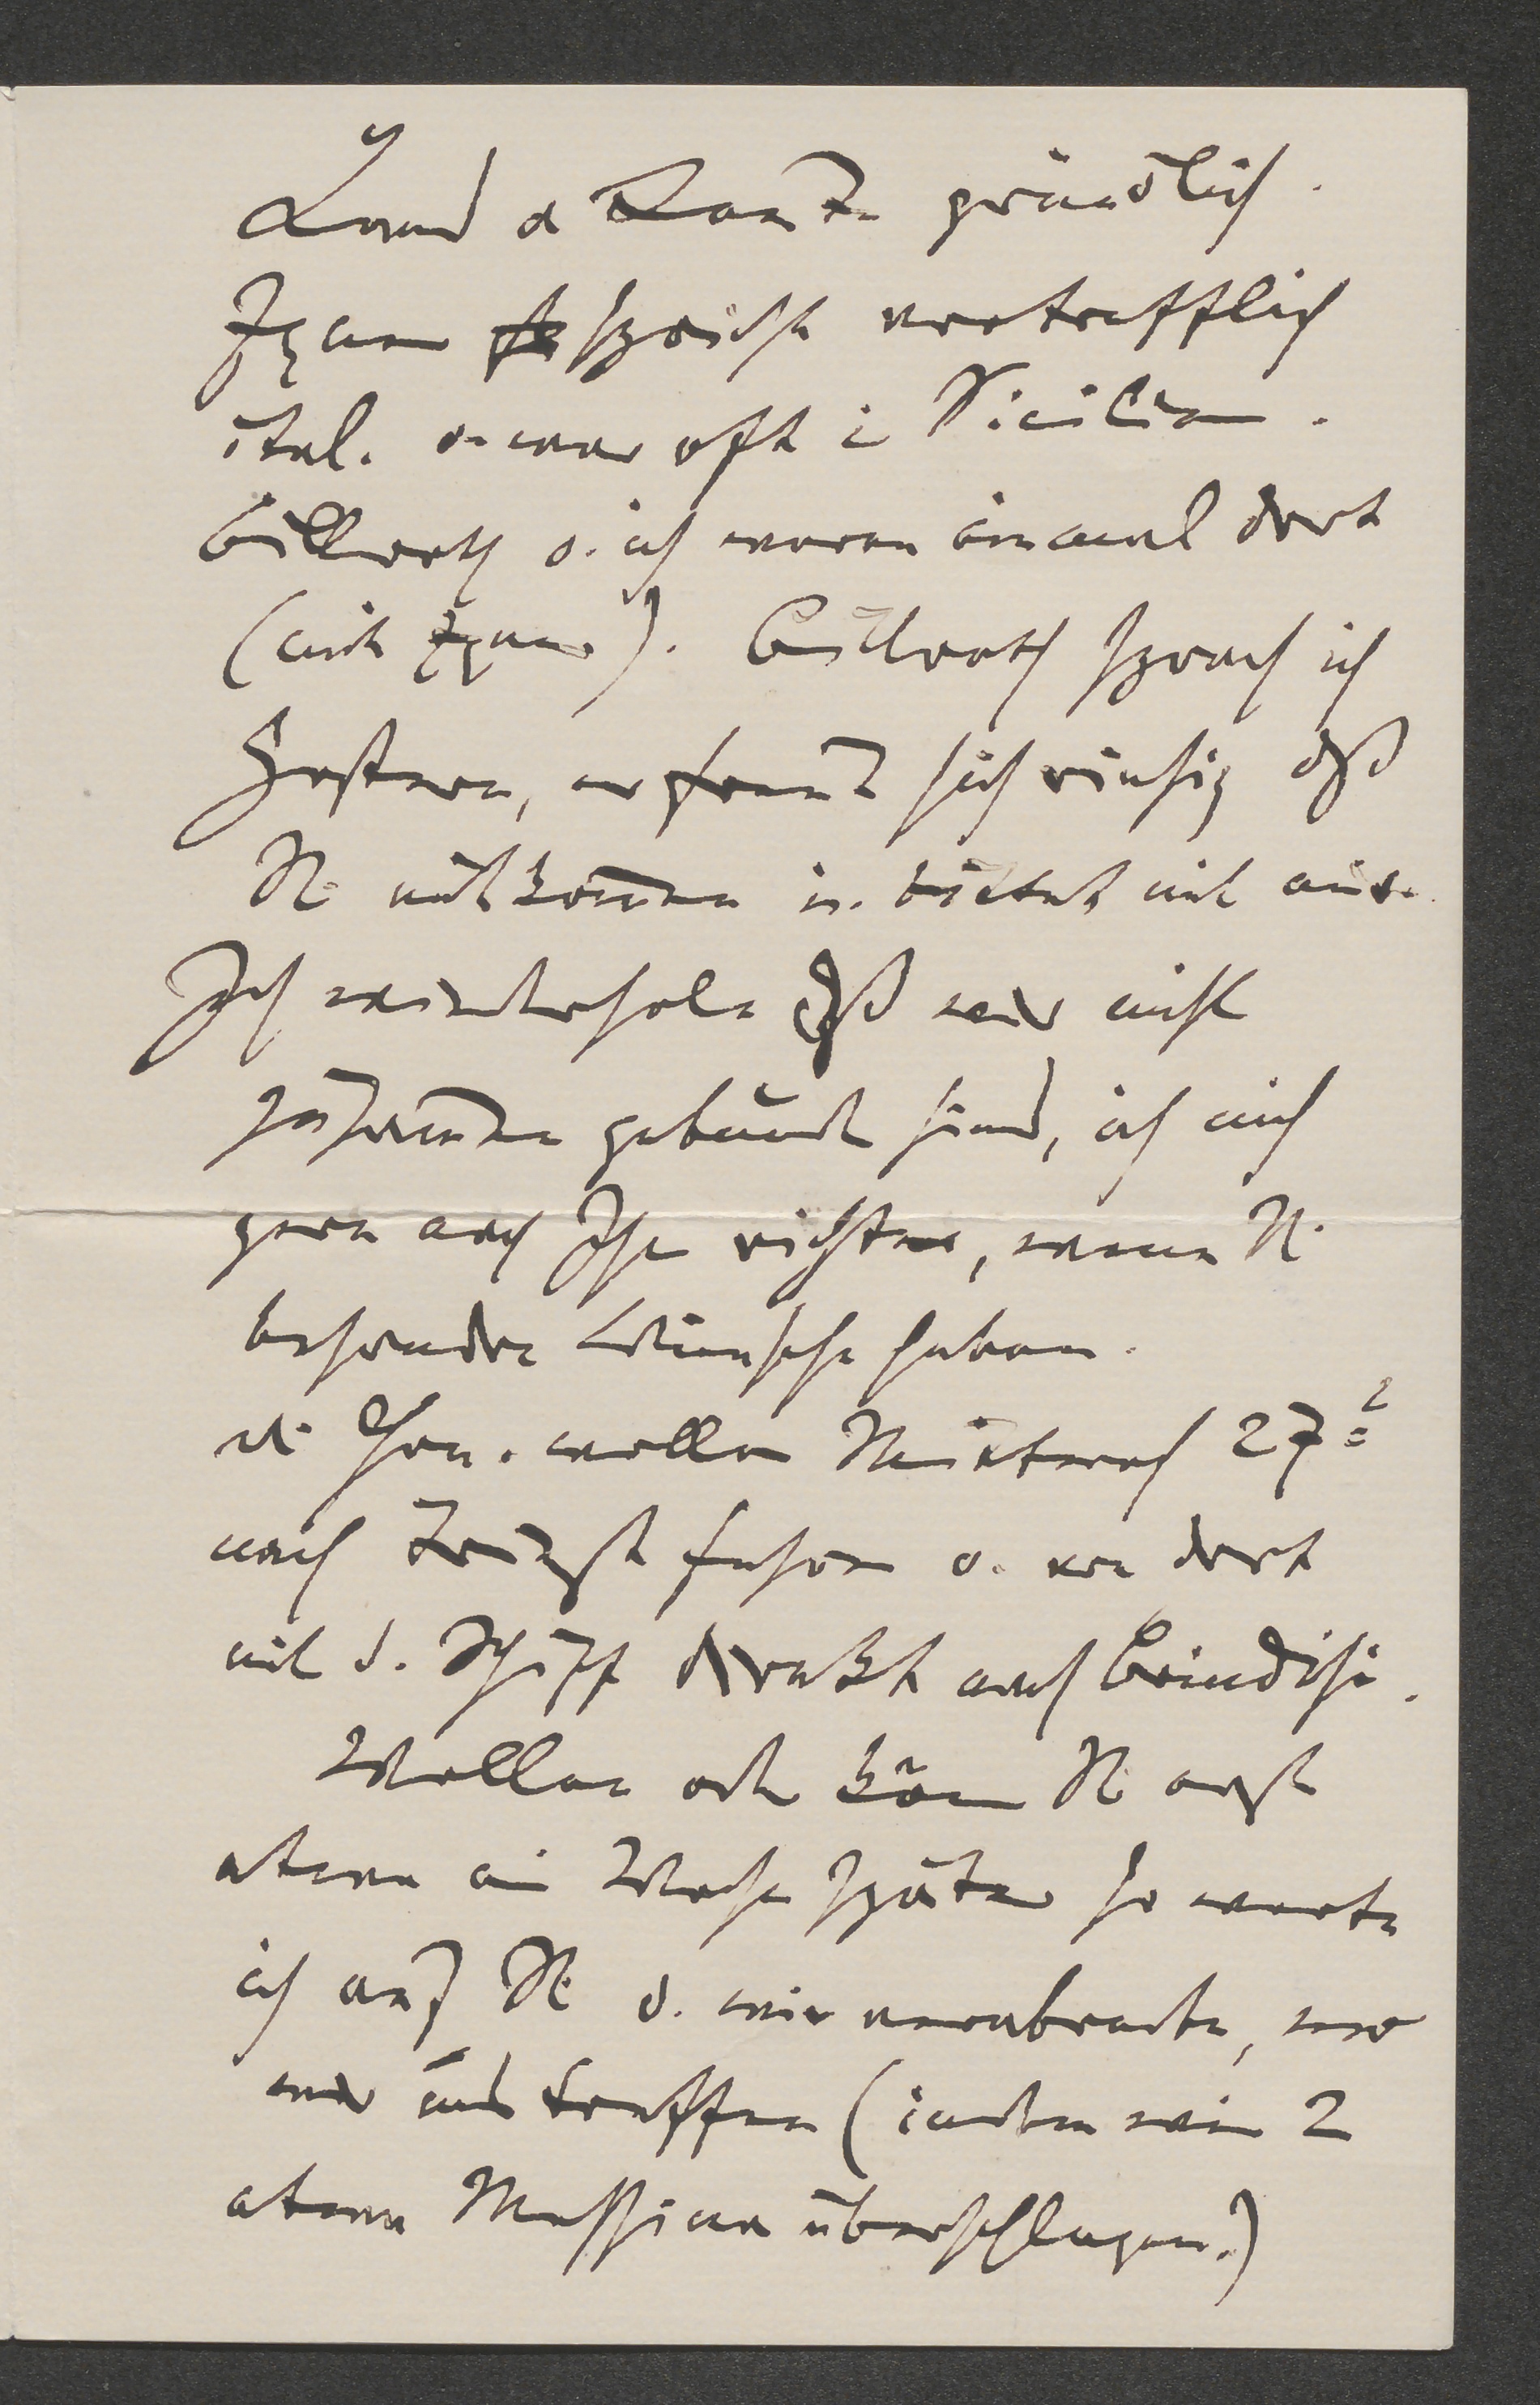 Land u Leute gründlich.
Exner spricht vortrefflich
ital. u. war oft in Sicilien.
Billroth u. ich waren einmal dort
(mit Exner). Billroth sprach ich
gestern, er freut sich riesig daß
Sie mitkommen u. bietet mit an.
Ich wiederhole daß wir nicht
zusammen gebunden sind, ich mich
gern nach Ihnen richte, wenn Sie
besondere Wünsche haben.
die Herren wollen Mittwoch 27
nach Triest fahren u. von dort
mit d. Schiff direkt nach Brindisi.
Wollen oder können Sie erst
etwa eine Woche später so warte
ich auf Sie u. wir verabreden, wo
wir uns treffen (indem wir 2
etwa Messina überschlagen.)